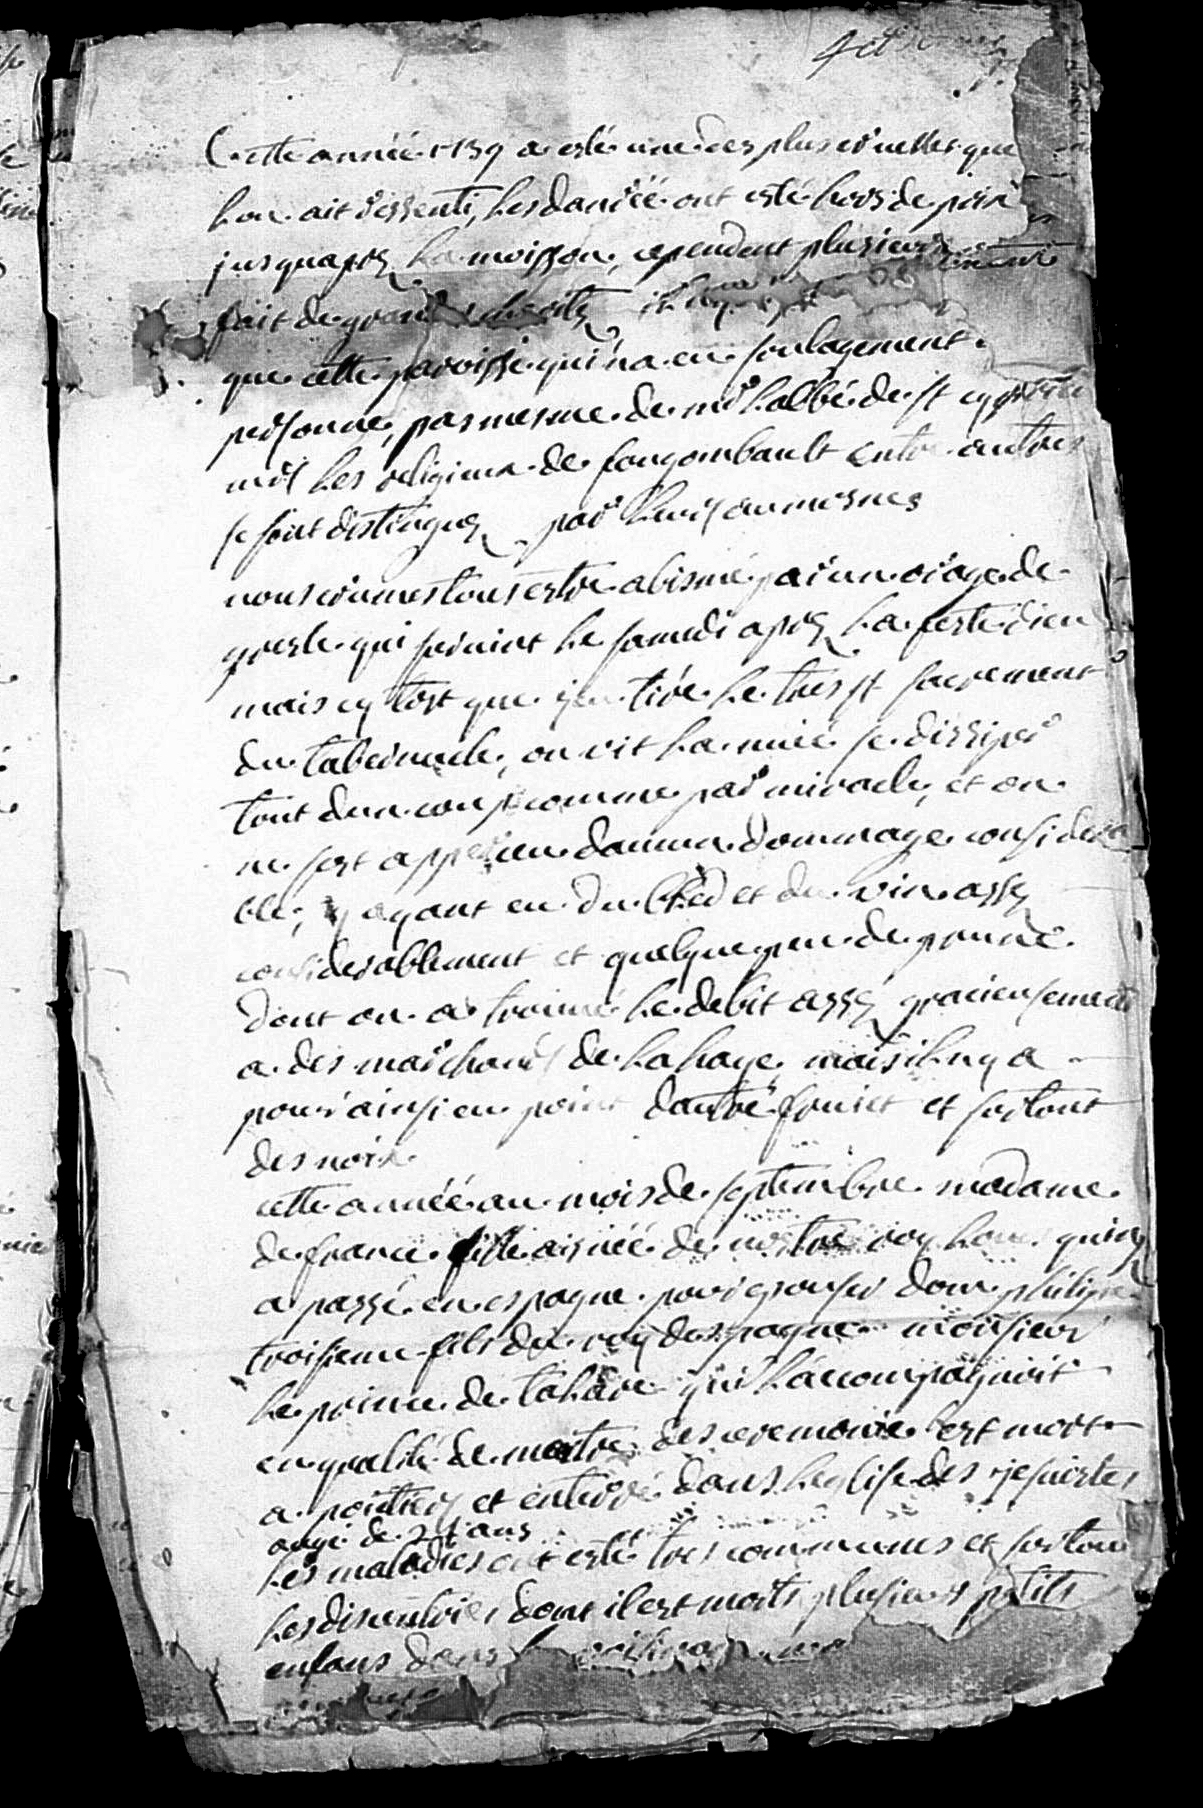 Cette année 1739 a esté une des plus cruelles que
lon ait ressenti, les danréé ont esté hors de prix
jusquapres la moisson, cependent plusieurs
fait de grande il ny
que cette paroisse qui na eu soulagement
personne, pas mesme de mr labbé de st
mrs les religieux de fongombault entre autres
se sont distingues par leurs aumosnes
nous crumes tous estre abismé par un orage de
gresle qui survint le samedi apres la feste dieu
mais sy tost que jeu tiré le tres st sacrement
du tabernacle, on vit la nuéé se dissiper
tout dun coup comme par miracle, et on
ne sest apperceu daucun dommage considera
ble, y ayant eu du bled et du vin assez
considerablement et quelque peu de prune
dont on a trouvé le debit assez gracieusement
a des marchans de la haye, mais il ny a
pour ainsi eu point dautre fruict et surtout
des noix
cette annéé au mois de septembre madame
de france fille aisnéé de nostre roy louis quinze
a passé en espagne pour epouser dom philippe
troisieme fils du roy despagne monsieur
le prince de qui lacompagnoit
en qualité de maitre des ceremonie est mort
a poitiers et enterré dans leglise des jesuistes
augé de ans
les maladies ont esté tres communes et surtout
les disenteries dont il est morts plusieurs petits
enfans dans le voisinage